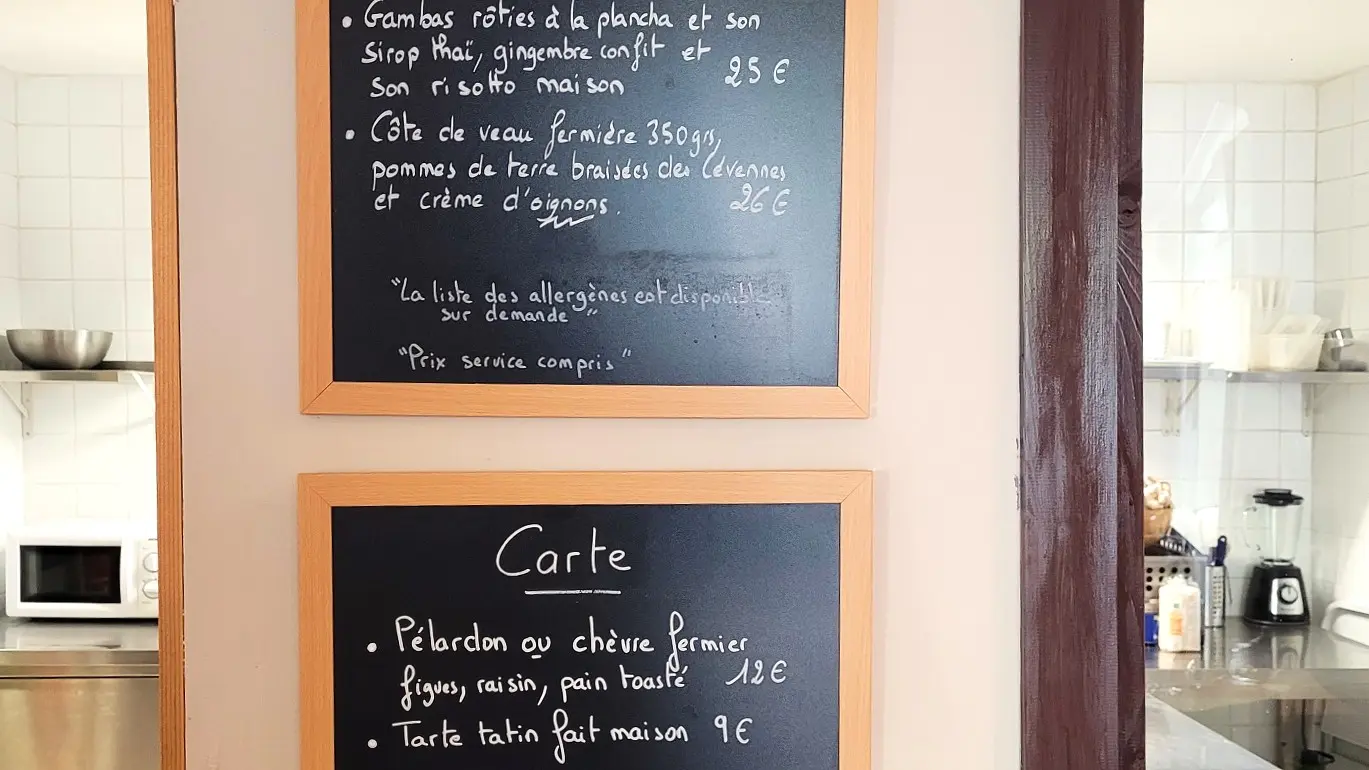 • Gambas rôties à la plancha et son
sirop thaï, gingembre confit et
son risotto maison 25 €
• Côte de veau fermière 350grs,
pommes de terre braisées des Cévennes
et crème d'oignons. 26 €
"La liste des allergènes est disponible
sur demande"
"Prix service compris"
Carte
• Pélardon ou chèvre fermier
figues, raisin, pain toasté 12 €
• Tarte tatin fait maison 9 €